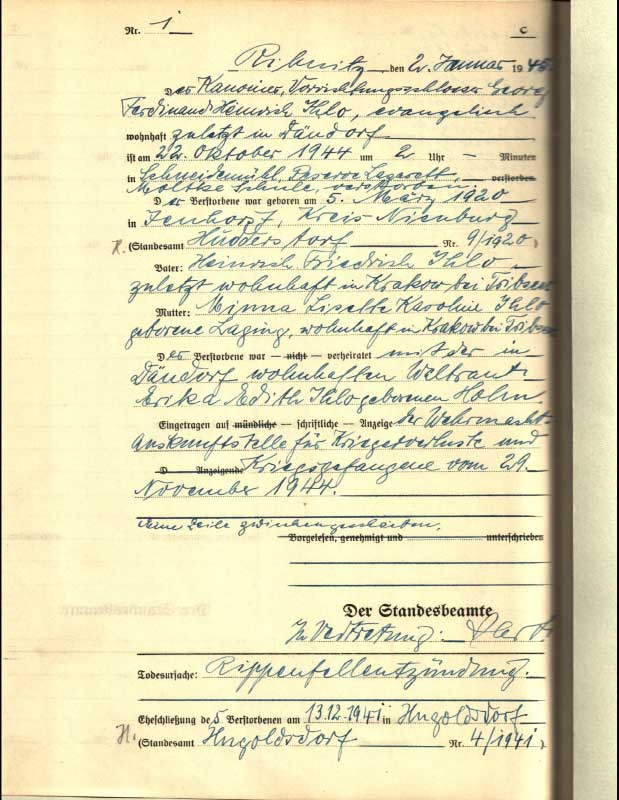 Nr. 1 C
Ribnitz, den 2. Januar 1945.
Der Kanonier, Vorrichtungsschlosser Georg
Ferdinand Heinrich Ihlo, evangelisch
wohnhaft zuletzt in Dändorf
ist am 22. Oktober 1944 um 2 Uhr – Minuten
in Schneidemühl, Reserve Lazarett, verstorben
Moltke Schule, verstorben.
Der Verstorbene war geboren am 5. März 1920
in Jenhorst, Kreis Nienburg
H. (Standesamt Huddestorf Nr. 9/1920)
Vater: Heinrich Friedrich Ihlo
zuletzt wohnhaft in Krakow bei Tribsees
Mutter: Minna Lisette Karoline Ihlo
geborene Laging, wohnhaft in Krakow bei Tribsees
Der Verstorbene war – nicht – verheiratet mit der in
Dändorf wohnhaften Waltraut
Erika Edith Ihlo geborenen Holm
Eingetragen auf mündliche – schriftliche – Anzeige der Wehrmacht-
auskunftstelle für Kriegerverluste und
D Anzeigende Kriegsgefangene vom 29.
November 1944.
eine Zeile zwischengeschrieben.
Vorgelesen, genehmigt und unterschrieben
Der Standesbeamte
In Vertretung:
Todesursache: Rippenfellentzündung.
Eheschließung des Verstorbenen am 13.12.1941 in Hugoldsdorf
H. (Standesamt Hugoldsdorf Nr. 4/1941)